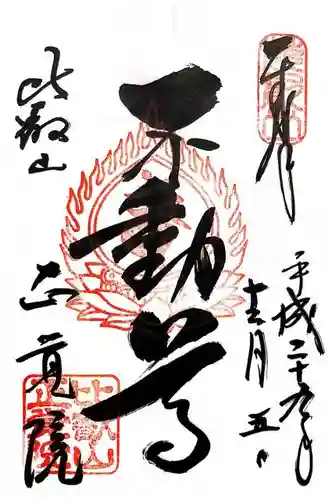 奉拝
平成二十九年
十一月五日
不動尊
比叡山
正覚院